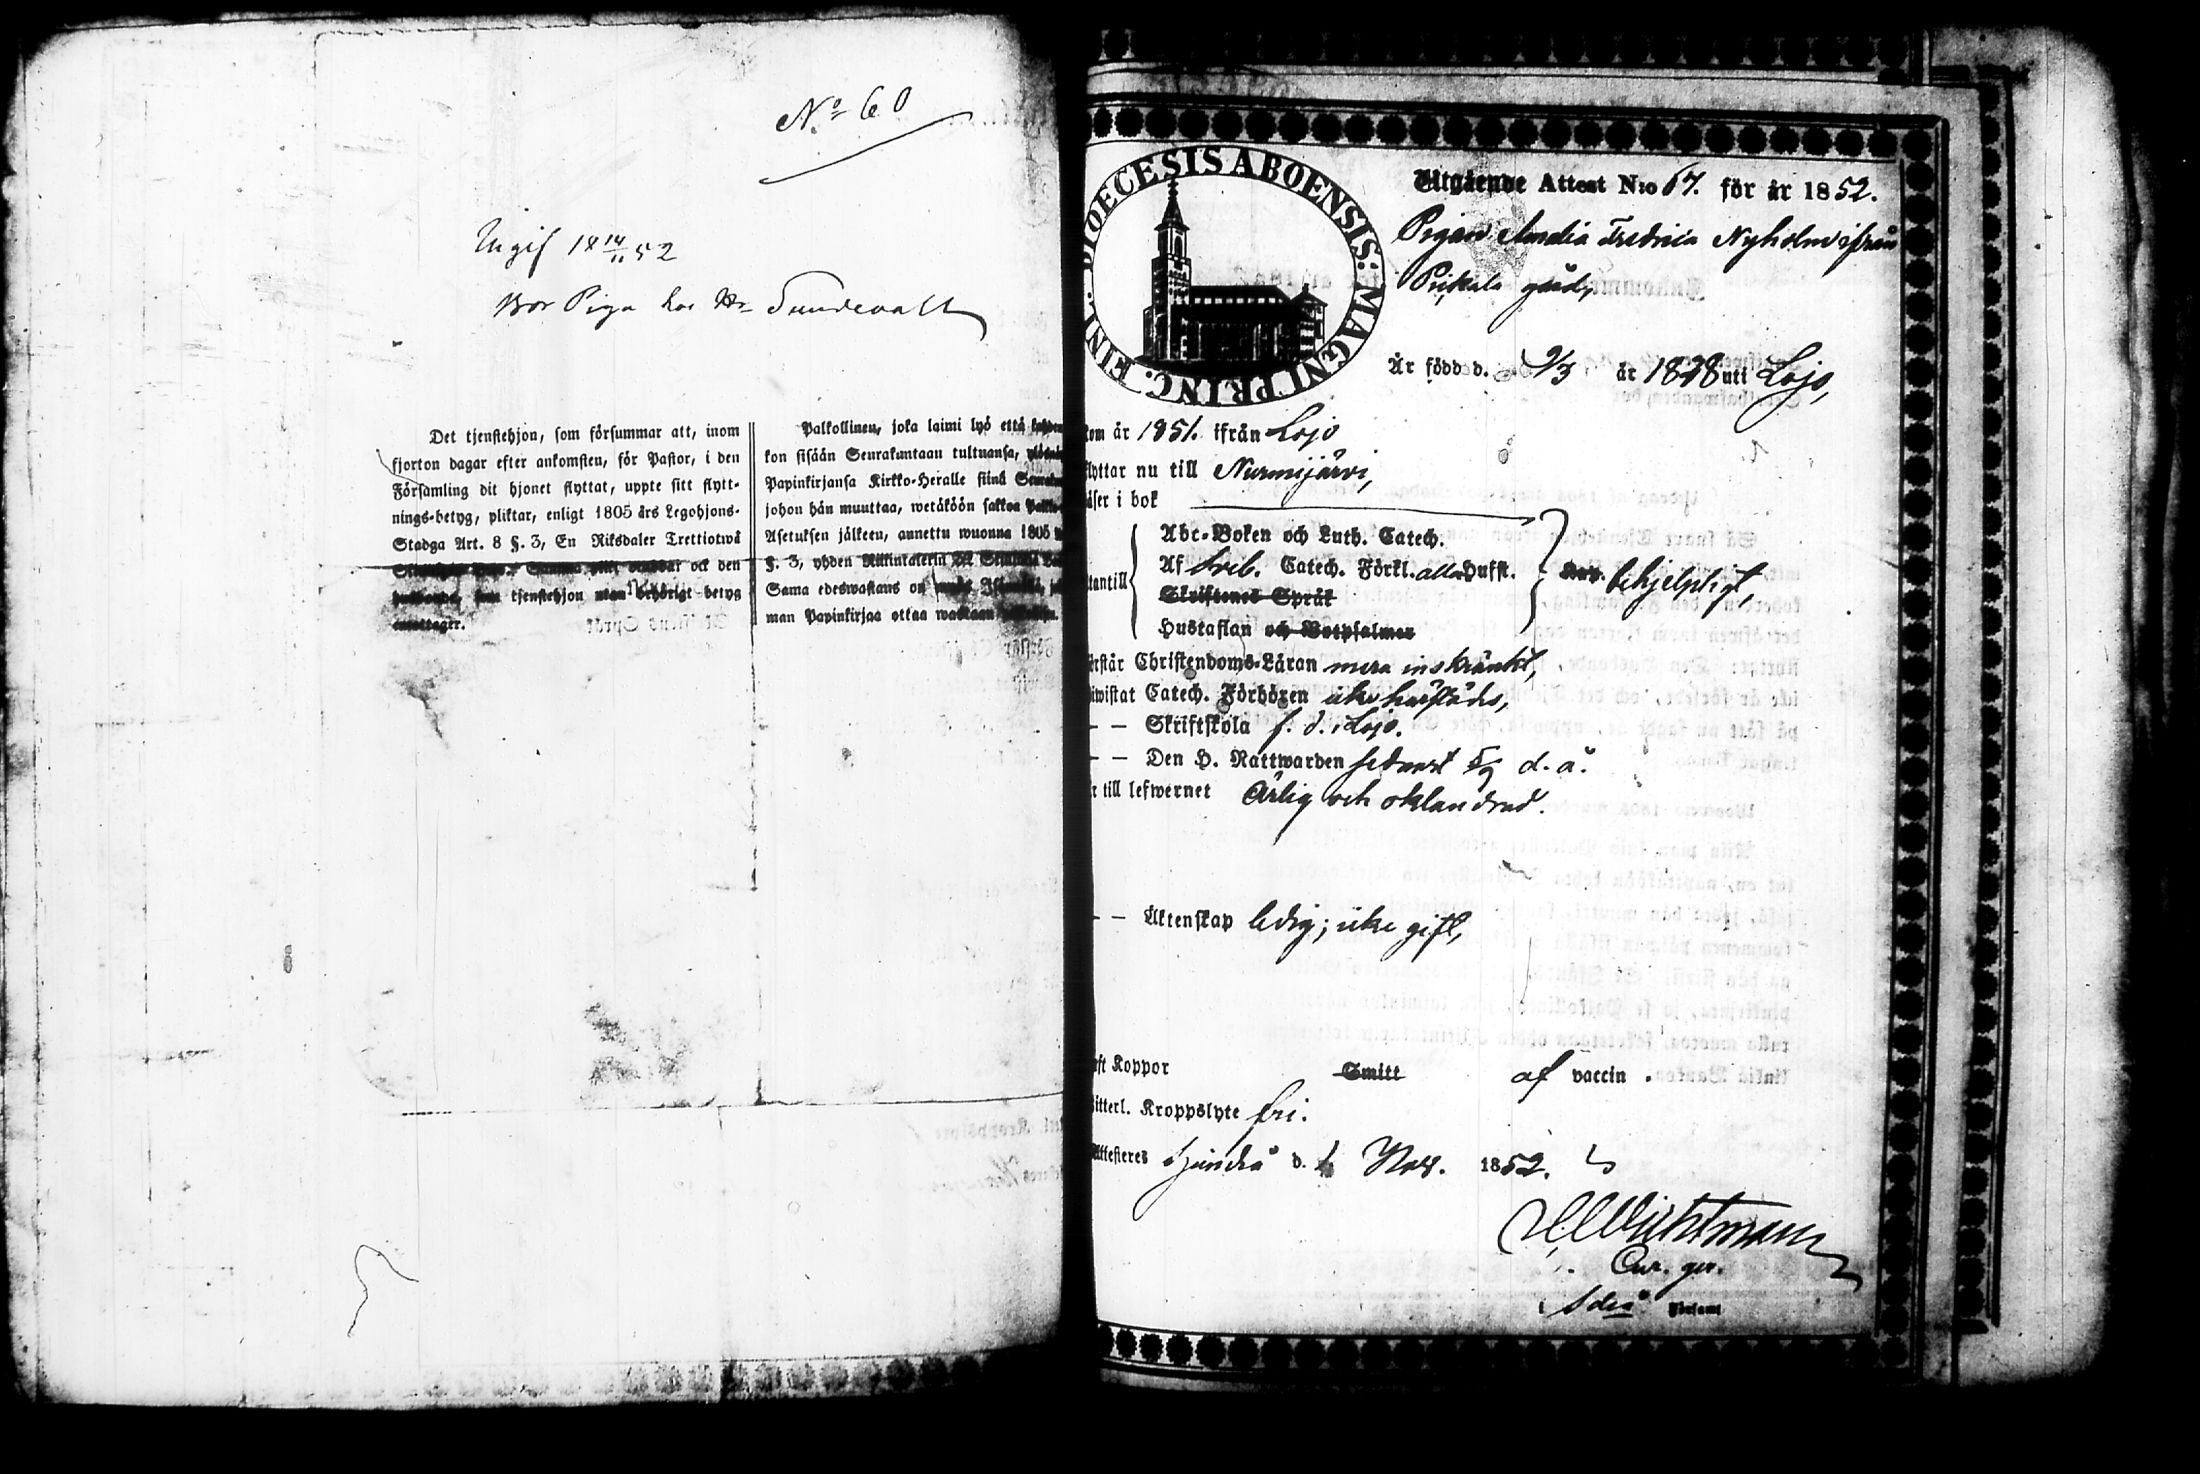 No 60
Ingif 18 14/11 52
Bor Piga hos Hr Sundevall
Det tjenstehjon, som försummar att, inom
fjorton dagar efter ankomsten, för Pastor, i den
Församling dit hjonet flyttat, uppte sitt flytt-
nings-betyg, pliktar, enligt 1805 års Legohjons-
Stadga Art. 8 §. 3, En Riksdaler Trettiotwå
ock den
tjenstehjon utan behörigt betyg
emottager.
Palkollinen, joka laimi lyö että
kon sisään Seurakuntaan tultuansa,
Papinkirjansa Kirkko-Herralle siinä
johon hän muuttaa, wetäköön sakkoa
Asetuksen jälkeen, annettu wuonna 1805
§. 3, yhden
Sama edeswastaus on
man Papinkirjaa ottaa wastaan
DIOECESIS ABOENSIS: MAGNI PRINC. FINL.
Utgående Attest N:o 67. för år 1852.
Pigan Amalia Fredrica Nyholm ifrån
Pickala gård,
Är född d. 9/3 år 1828 uti Lojo,
kom år 1851. ifrån Lojo
flyttar nu till Nurmijärvi,
läser i bok
utantill
Abc-Boken och Luth. Catech.
Af Sveb. Catech. Förkl. alla Hufst.
Skriftenes Språk
Hustaflan och Botpsalmer
behjelpligt,
förstår Christendoms-Läran mera inskränkt,
biwistat Catech. Förhören icke härstädes,
— — Skriftskola f. d. i Lojo.
— — Den H. Nattwarden sednast 5/9 d. å.
är till lefwernet Ärlig och oklandrad.
— — Äktenskap ledig; icke gift,
haft Koppor Smitt af vaccin.
Witterl. Kroppslyte fri.
Attesteres Sjundeå d. 1 Nov. 1852.
Cur. ger.
i Sdeå Församl